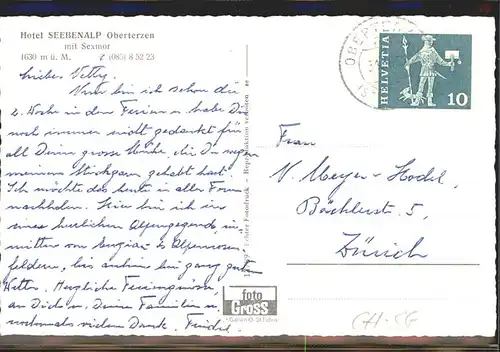 Hotel SEEBENALP Oberterzen
mit Sexmor
1630 m ü. M. (085) 8 52 23
Liebes Vetty.
Nun bin ich schon die
2. Woche in den Ferien u. habe Dir
noch immer nicht gedankt für
all Deine grosse Mühe, die Du wegen
meinem Strickgarn gehabt hast.
Ich möchte das heute in aller Form
nachholen. Hier bin ich in
einer herrlichen Alpengegend, in-
mitten von Enzian- & Alpenrosen-
feldern, bis anhin bei ganz gutem
Wetter. Herzliche Feriengrüsse
an Dich u. Deine Familie u.
nochmals vielen Dank. Friedel
Echter Fotodruck - Reproduktion verboten
foto
Gross
St. Gallen
HELVETIA
10
Frau
V. Meyer-Hodel
Bächlerstr. 5,
Zürich
CH-SG